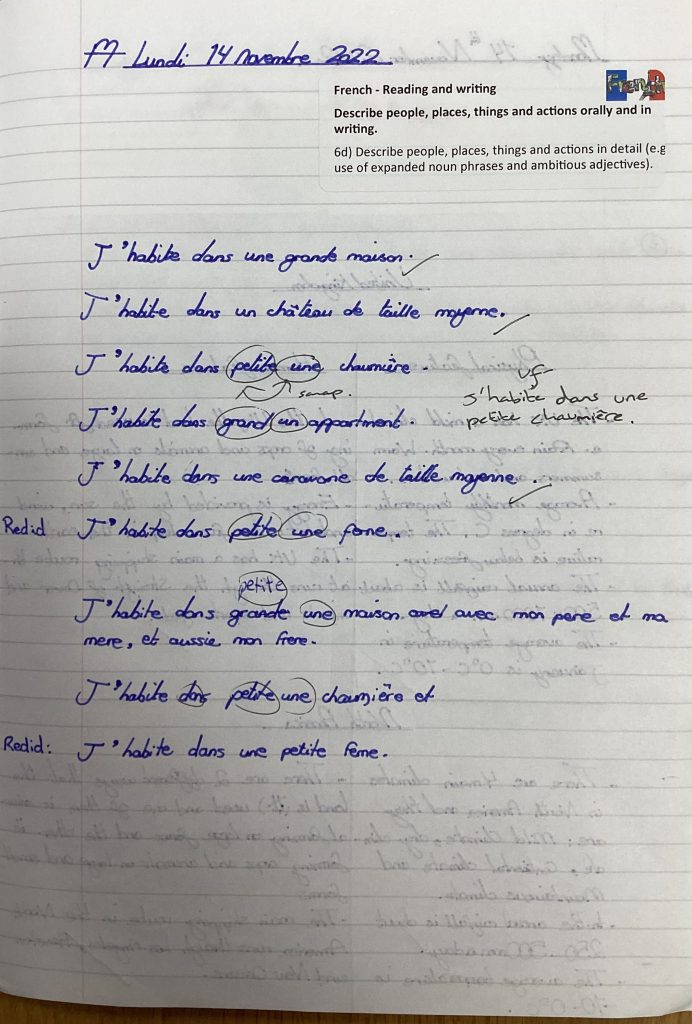 M Lundi 14 novembre 2022.
French
French - Reading and writing
Describe people, places, things and actions orally and in
writing.
6d) Describe people, places, things and actions in detail (e.g
use of expanded noun phrases and ambitious adjectives).
J'habite dans une grande maison.
J'habite dans un château de taille moyenne.
J'habite dans petite une chaumière.
swap.
J'habite dans une
petite chaumière.
J'habite dans grand un appartment.
J'habite dans une caravane de taille moyenne.
Redid J'habite dans petite une ferme.
petite
J'habite dans grande une maison avec mon pere et ma
mere, et aussie mon frere.
J'habite dans petite une chaumière et
Redid: J'habite dans une petite ferme.